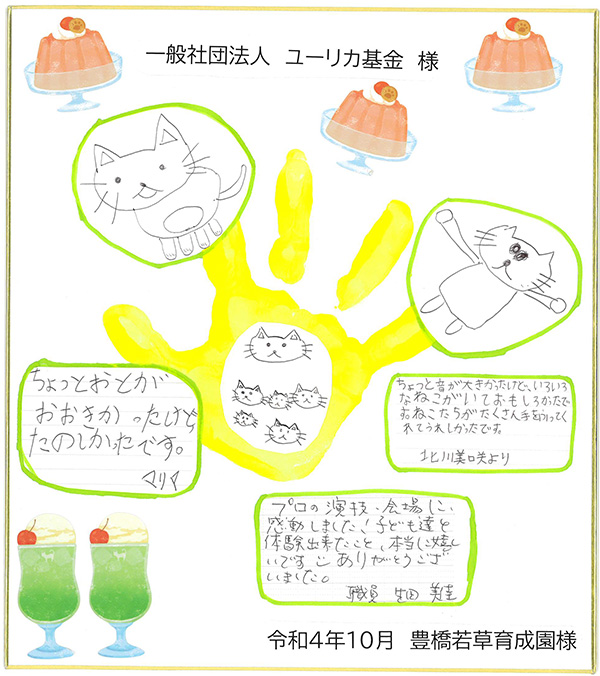 一般社団法人 ユーリカ基金 様
ちょっとおとが
おおきかったけど、
たのしかったです。
マリマ
ちょっと音が大きかったけど、いろいろ
なねこがいておもしろかったで
す。ねこたちがたくさん手をふってく
れてうれしかったです。
北川美咲より
プロの演技、会場に、
感動しました！子ども達と
体験出来たこと、本当に嬉し
いです ありがとうござ
いました。
職員 生田 美佳
令和4年10月 豊橋若草育成園様